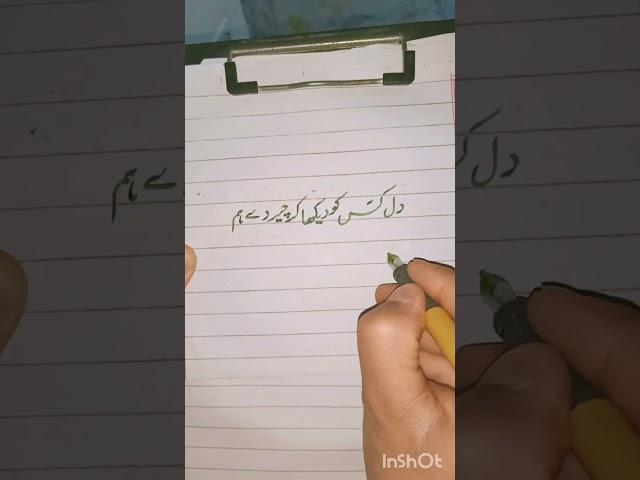 دل کس کو دیکھا کر چیر دے ہم
InShOt